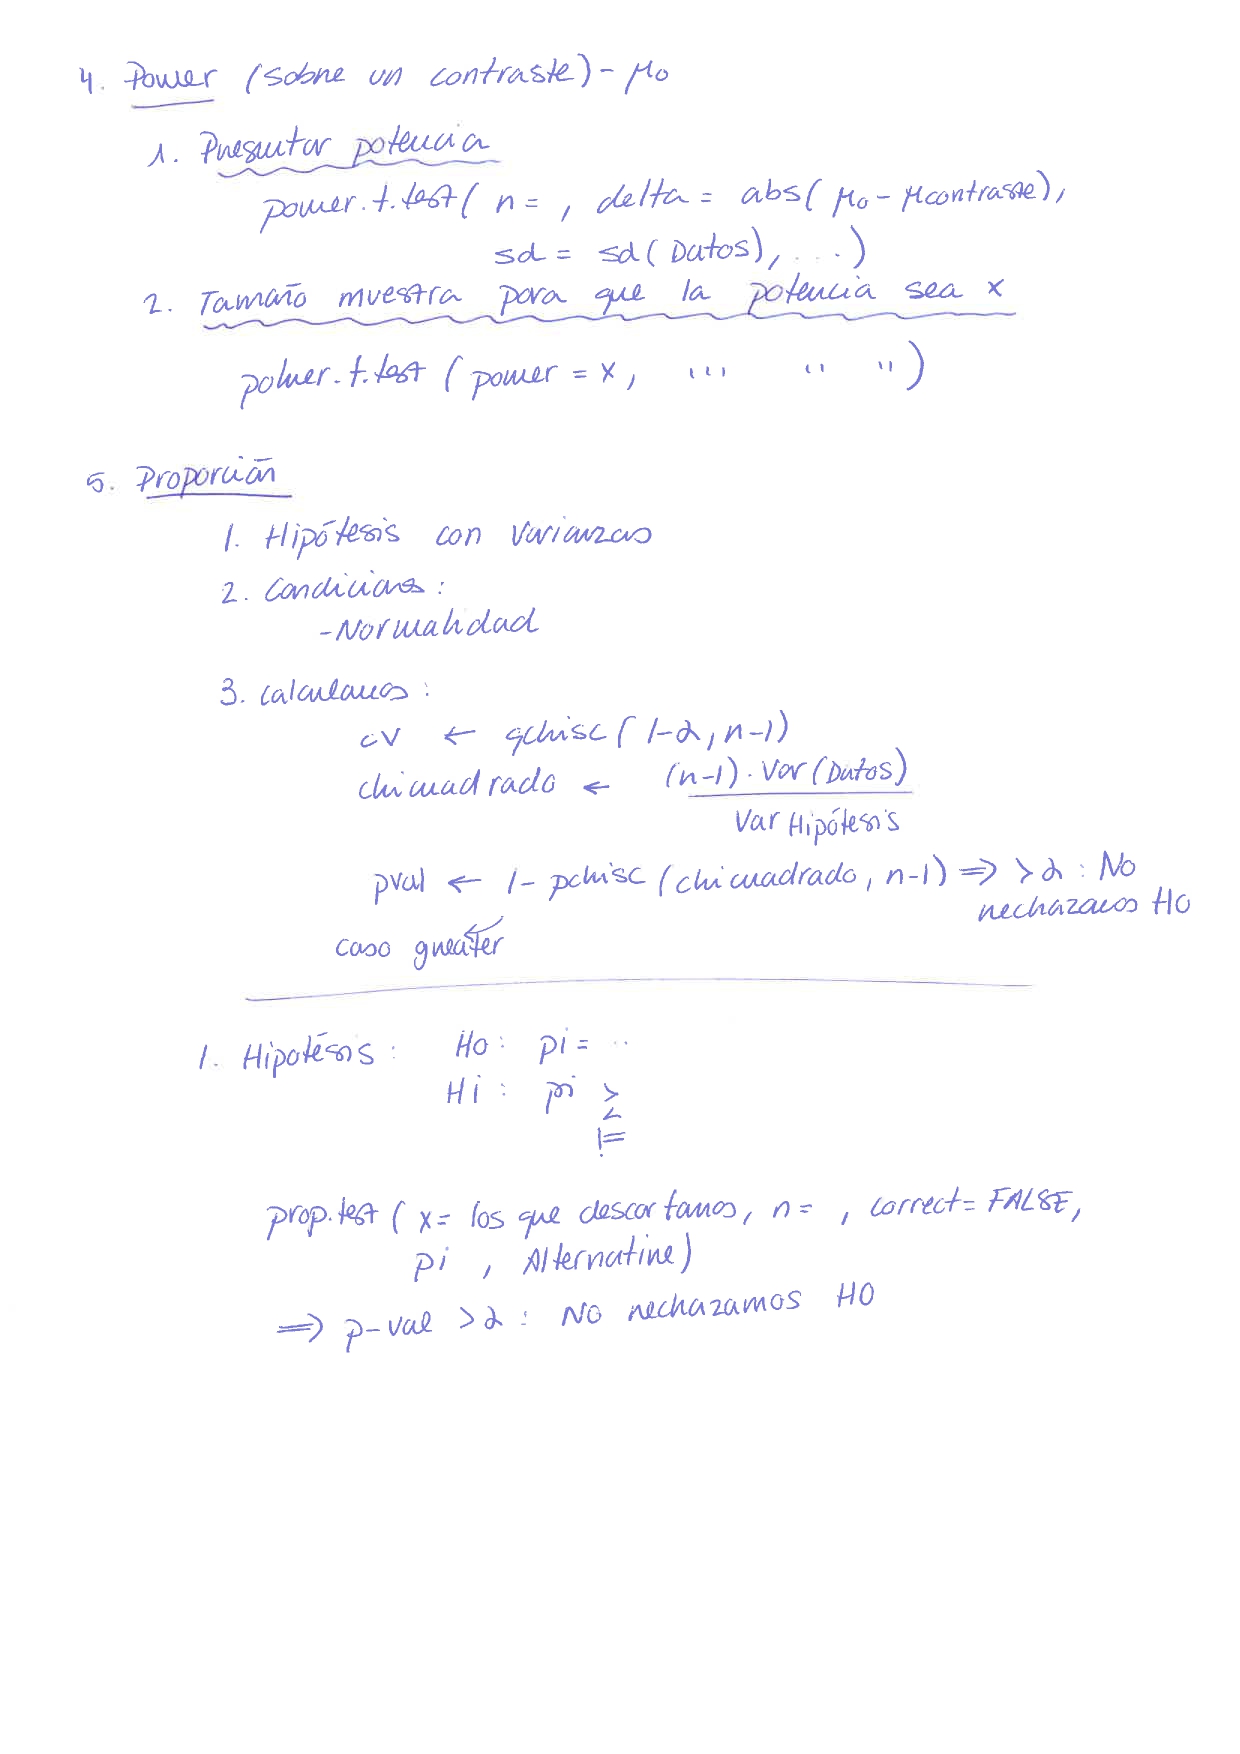 4. Power (sobre un contraste) - μo
1. Preguntar potencia
power.t.test( n = , delta = abs( μo - μcontraste),
sd = sd( Datos), ...)
2. Tamaño muestra para que la potencia sea x
power.t.test ( power = x, ... " ")
5. Proporción
1. Hipótesis con varianzas
2. Condiciones :
- Normalidad
3. calculamos :
cv ← qchisc ( 1-α, n-1)
chicuadrado ← (n-1) · Var (Datos)
Var Hipótesis
pval ← 1 - pchisc (chicuadrado, n-1) ⇒ > α : No
rechazamos H0
caso greater
1. Hipotésis : Ho : pi = ..
Hi : pi >
<
!=
prop.test ( x = los que descartamos, n = , correct = FALSE,
pi , Alternative)
⇒ p-val > α : NO rechazamos H0